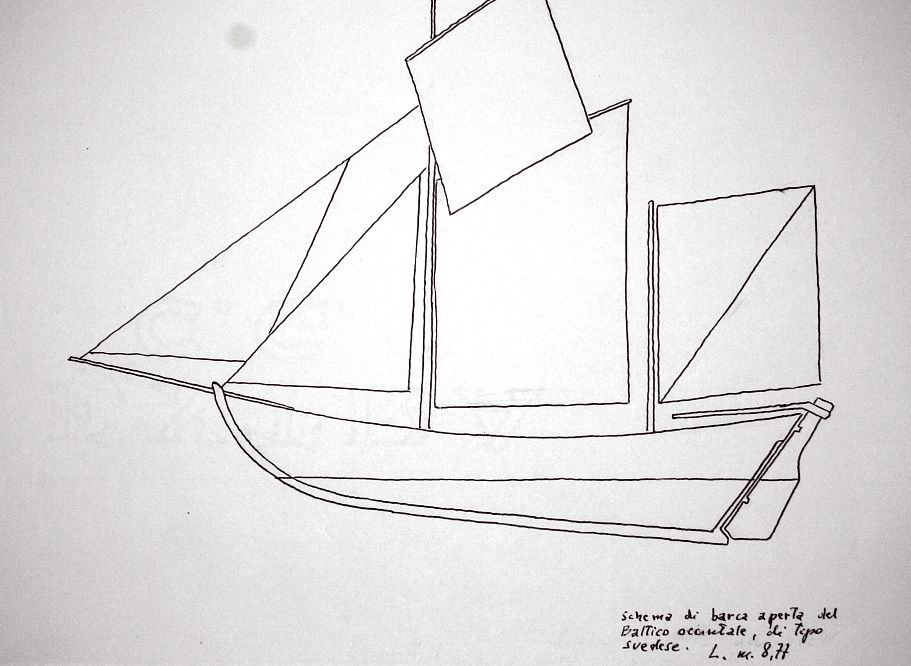 schema di barca aperta del
Baltico occidentale, di tipo
svedese. L. m. 8,77